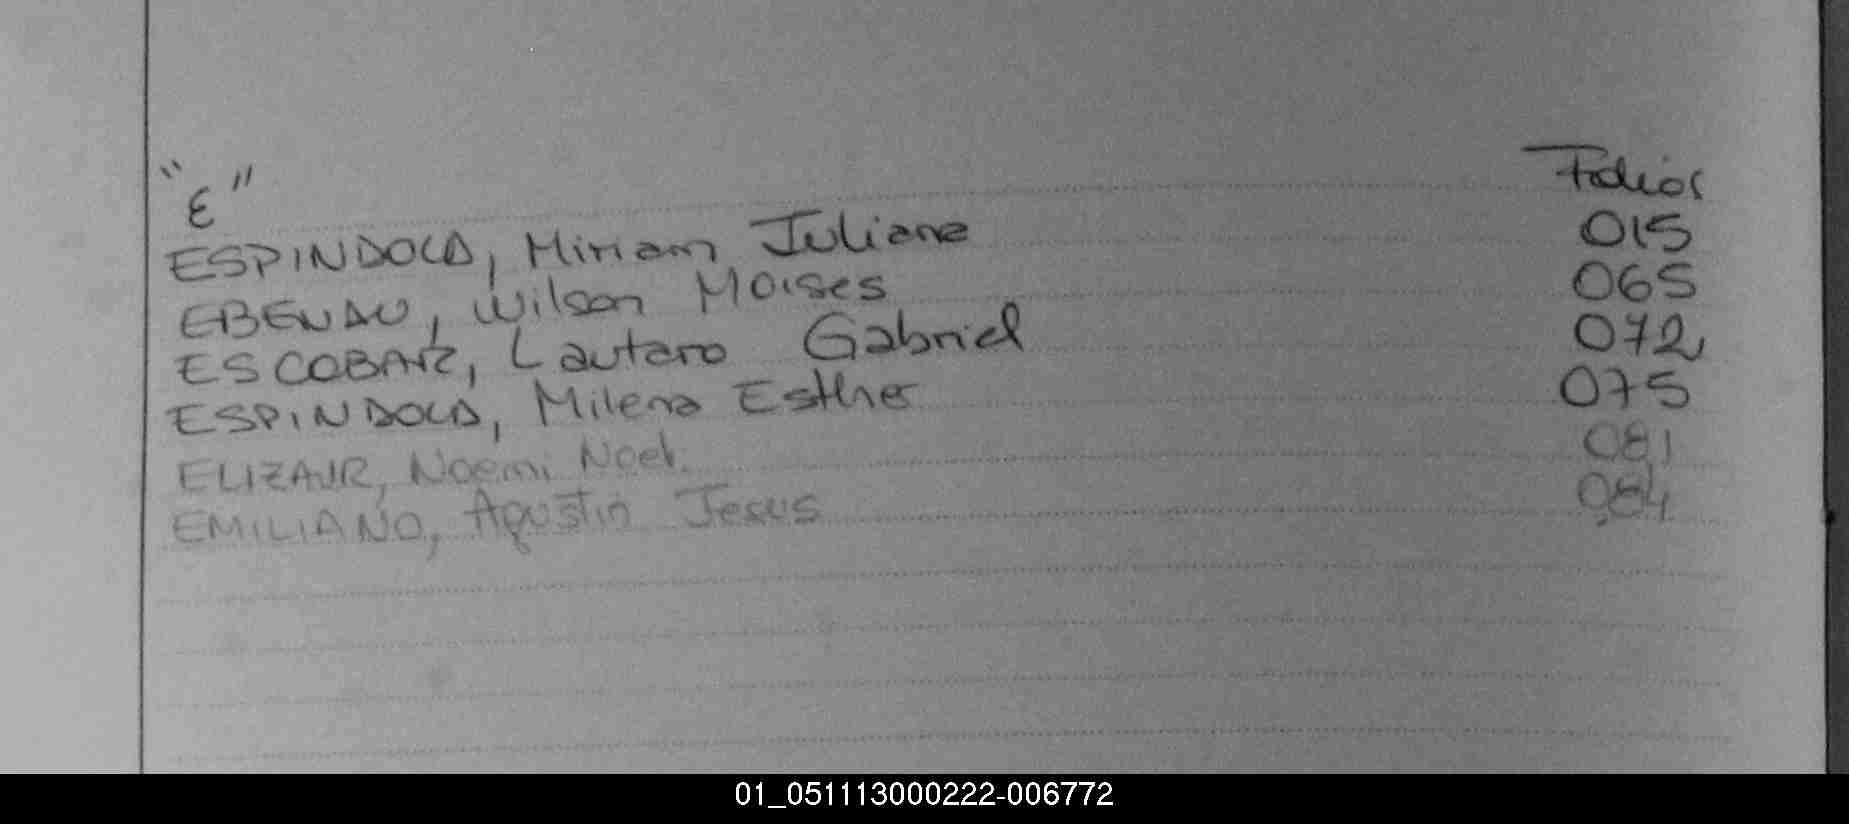 "E" Folios
ESPINDOLA, Miriam Juliana 015
EBENAU, Wilson Moises 065
ESCOBAR, Lautaro Gabriel 072
ESPINDOLA, Milena Esther 075
ELIZAUR, Noemi Noel. 081
EMILIANO, Agustin Jesus 084
01_051113000222-006772